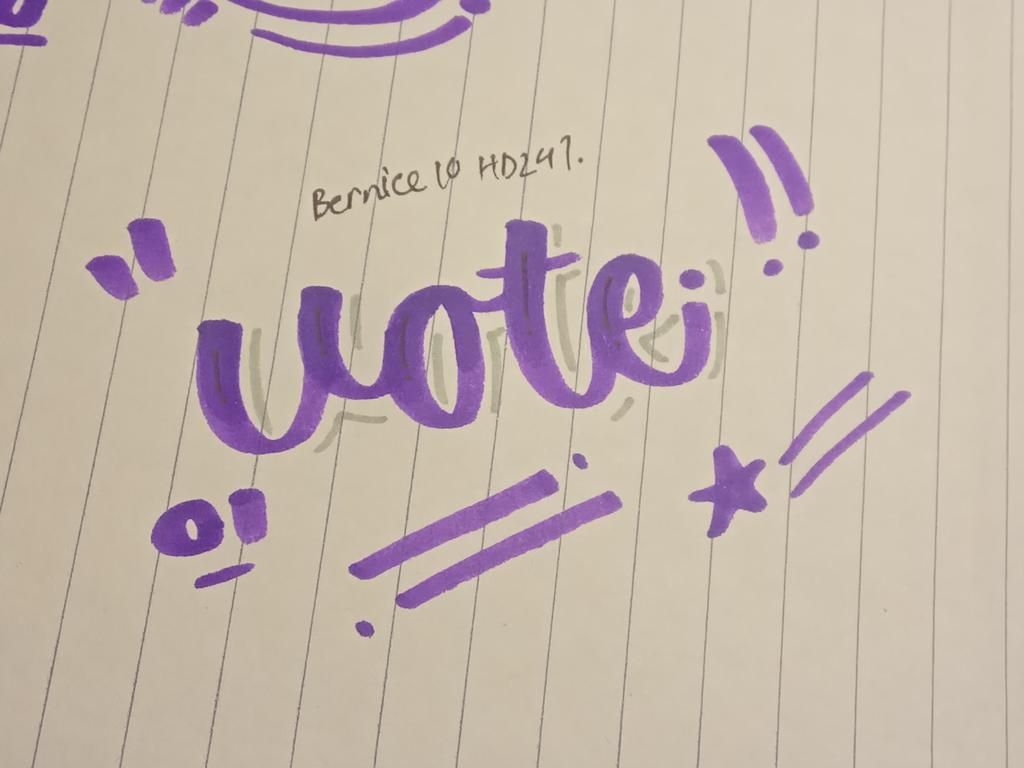 Bernice lo HD247.
"vote!!
01